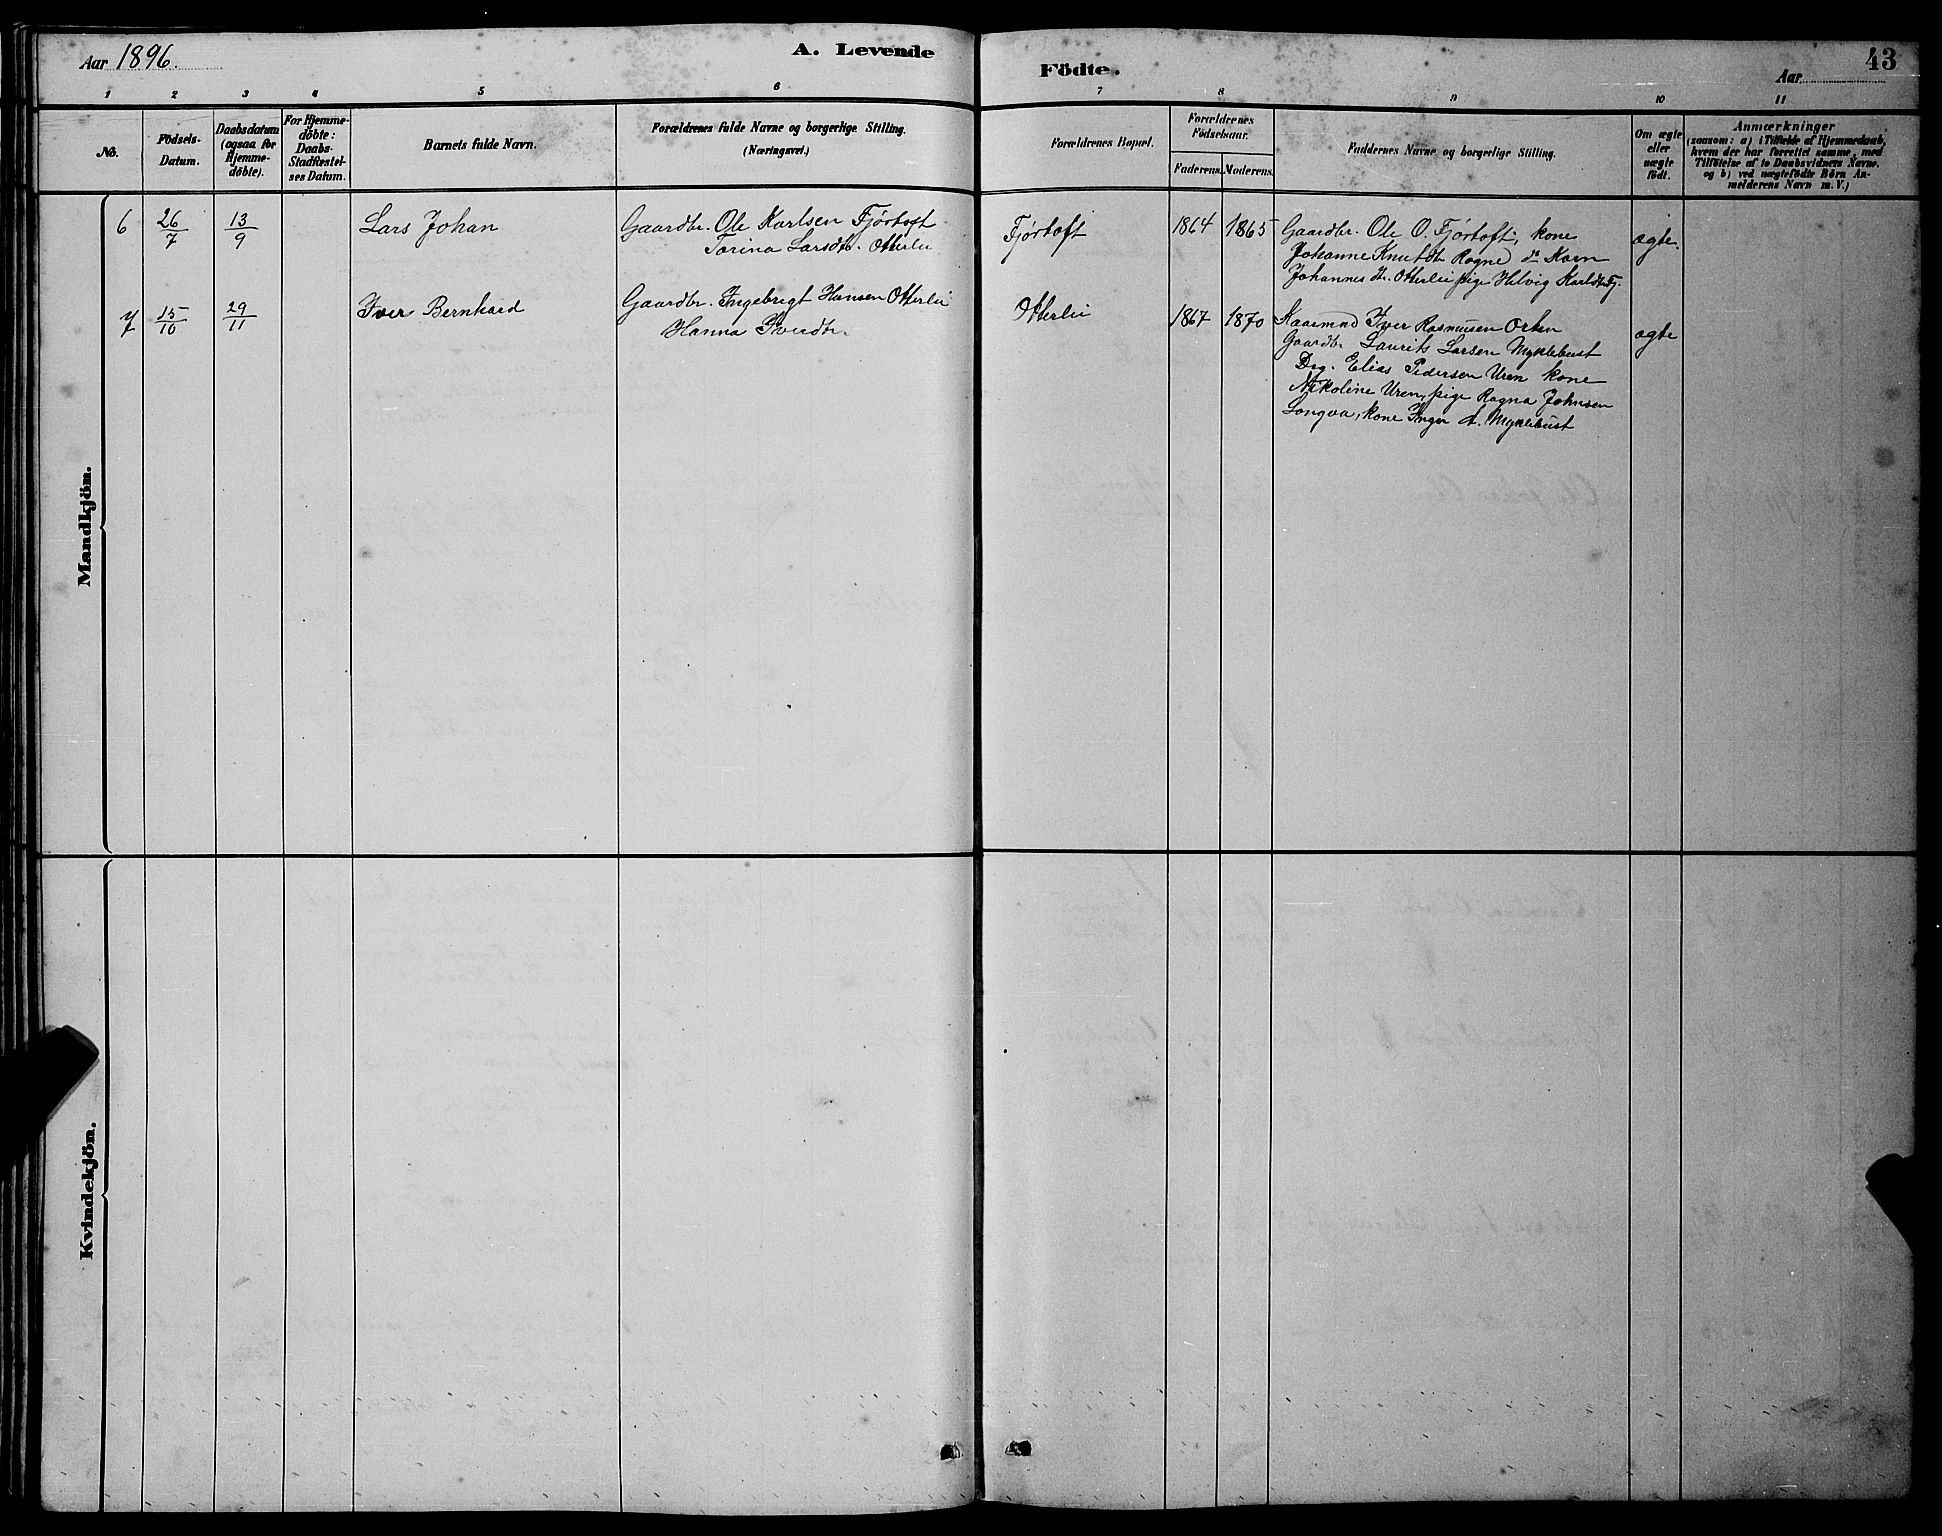 Aar 1896.
A. Levende
Födte.
Aar
43
1 2 3 4 5 6 7 8 9 10 11
No.
Födsels-
Datum.
Daabsdatum
(ogsaa for
Hjemme-
döbte).
For Hjemme-
döbte:
Daabs-
Stadfæstel-
ses Datum.
Barnets fulde Navn.
Forældrenes fulde Navne og borgerlige Stilling.
(Næringsvei.)
Forældrenes Bopæl.
Forældrenes
Födselsaar.
Faderens. Moderens.
Faddernes Navne og borgerlige Stilling.
Om ægte
eller
uægte
født.
Anmærkninger
(saasom: a) i Tilfælde af Hjemmedaab,
hvem der har forrettet samme, med
Tilföielse af to Daabsvidners Navne,
og b) ved uægtefödte Börn An-
melderens Navn m.V.)
Mandkjön.
6 26/7 13/9 Lars Johan
Gaardbr. Ole Karlsen Fjørtoft
Torina Larsdtr. Otterlei
Fjørtoft
1864 1865
Gaardbr. Ole O. Fjørtoft, kone
Johanne Knutdtr Rogne do Karn
Johannesdtr. Otterlei pige Helvig Karldtr Fj.
ægte.
7 15/10 29/11 Iver Bernhard
Gaardbr. Ingebrigt Hansen Otterlei
Hanna Iversdtr.
Otterlei
1867 1870
Kaarmnd Iver Rasmussen Orten
Gaardbr Laurits Larsen Myklebust
Drg. Elias Pedersen Uren kone
Nikoline Uren, pige Ragna Johnsen
Longva, kone Inger A. Myklebust
ægte
Kvindekjön.